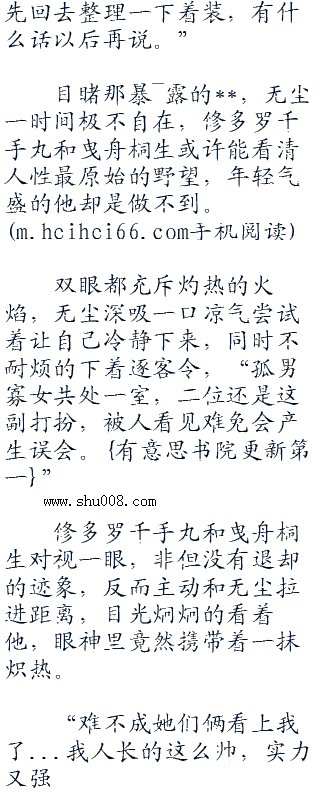 先回去整理一下着装，有什
么话以后再说。”
目睹那暴¯露的**，无尘
一时间极不自在，修多罗千
手丸和曳舟桐生或许能看清
人性最原始的野望，年轻气
盛的他却是做不到。
(m.hcihci66.com手机阅读)
双眼都充斥灼热的火
焰，无尘深吸一口凉气尝试
着让自己冷静下来，同时不
耐烦的下着逐客令，“孤男
寡女共处一室，二位还是这
副打扮，被人看见难免会产
生误会。{有意思书院更新第
一}”
www.shu008.com
修多罗千手丸和曳舟桐
生对视一眼，非但没有退却
的迹象，反而主动和无尘拉
进距离，目光炯炯的看着
他，眼神里竟然携带着一抹
炽热。
“难不成她们俩看上我
了...我人长的这么帅，实力
又强